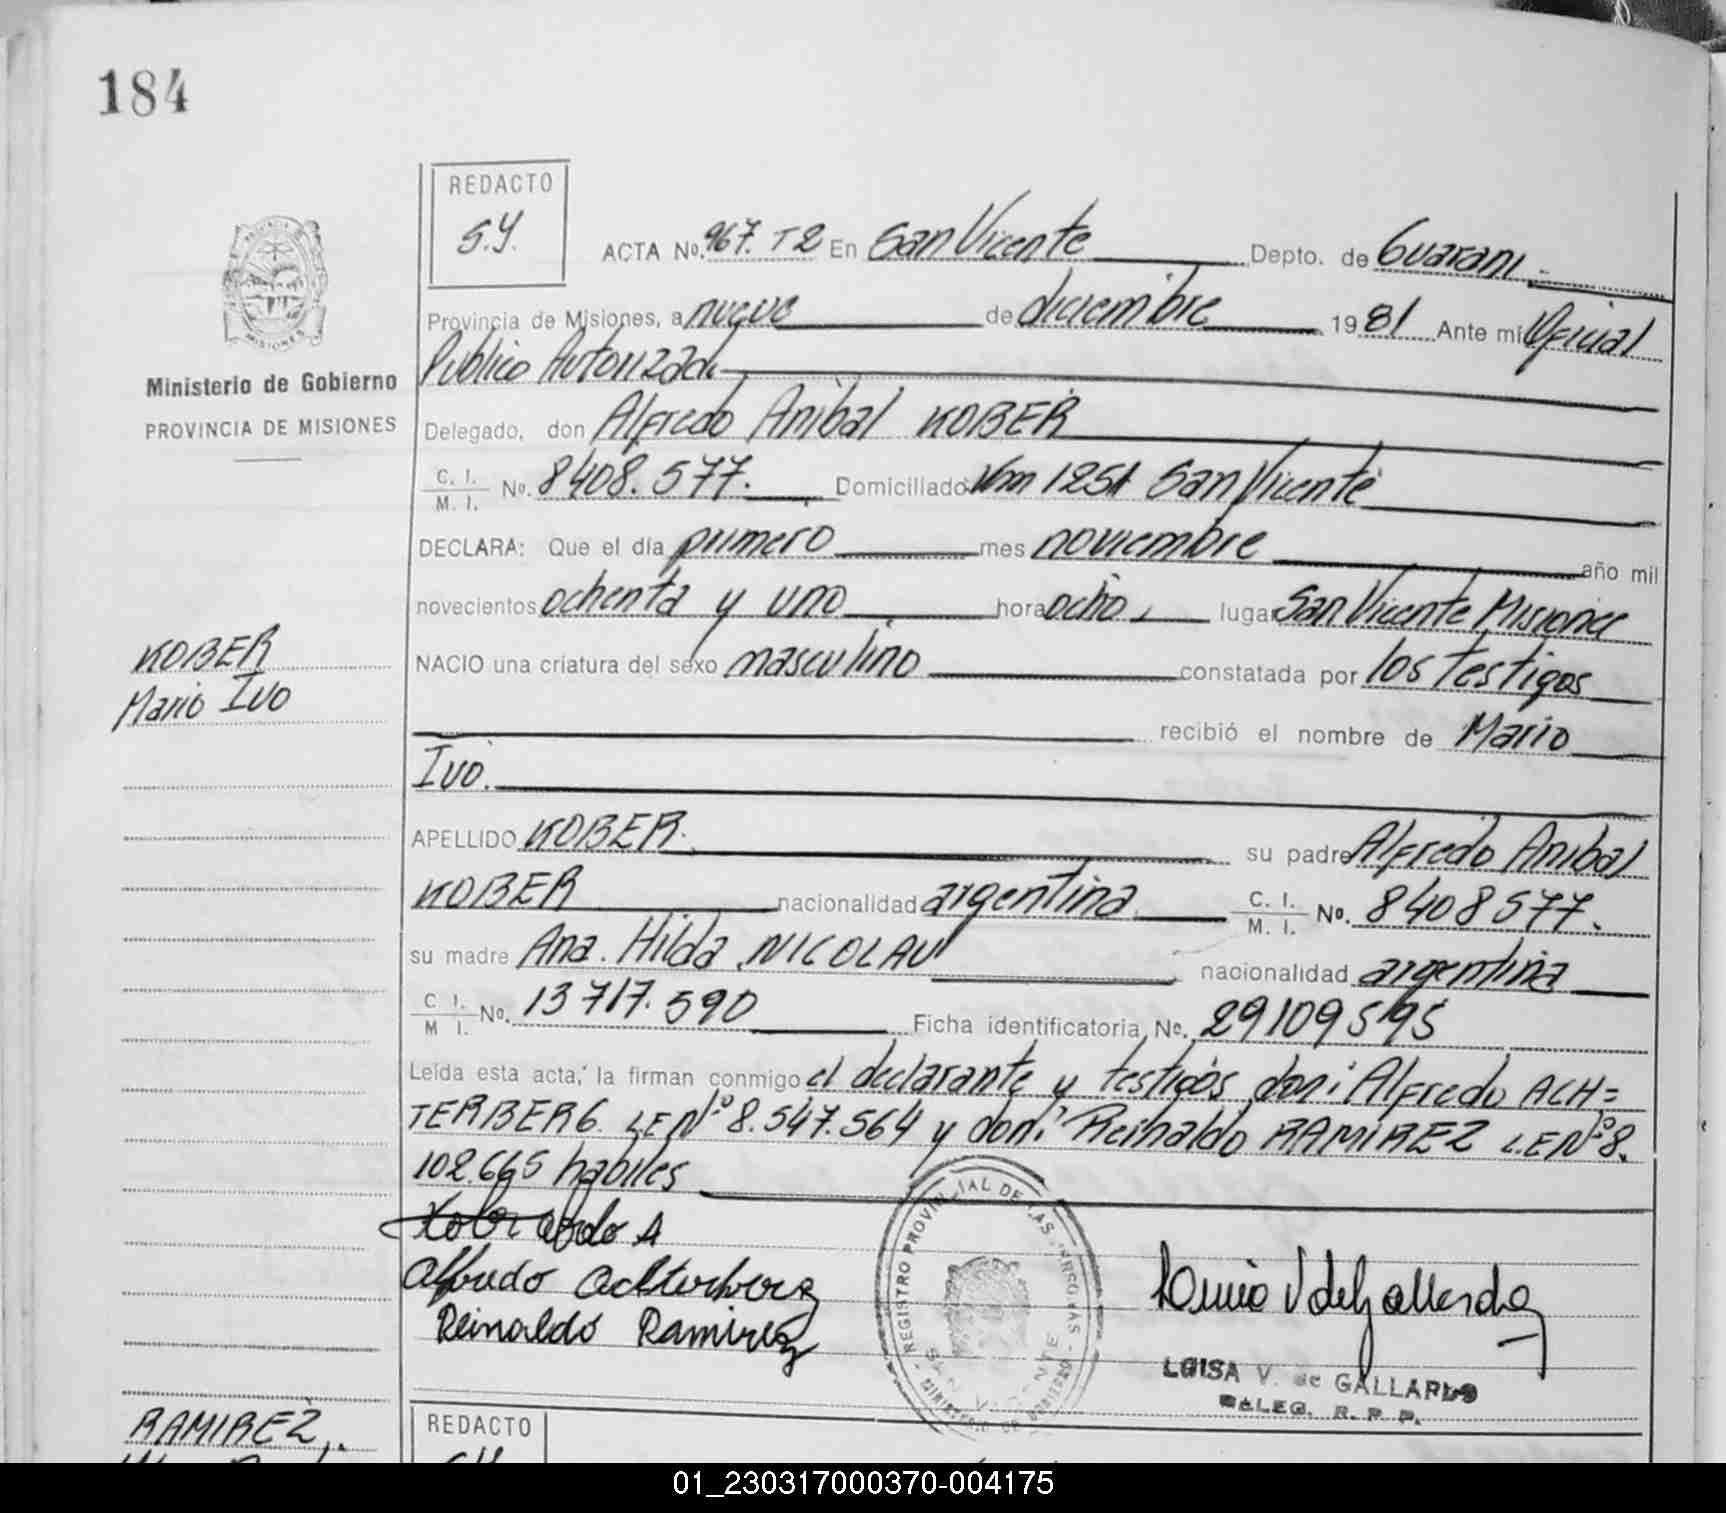 184
REDACTO
S.Y.
ACTA No. 967. T 2 En San Vicente Depto. de Guaraní
Provincia de Misiones, a nueve de diciembre 1981 Ante mí Oficial
Público Autorizado
Ministerio de Gobierno
PROVINCIA DE MISIONES
Delegado, don Alfredo Anibal KOBER
C. I.
M. I. No. 8408.577. Domiciliado Km 1251 San Vicente
DECLARA: Que el día primero mes noviembre año mil
novecientos ochenta y uno hora ocho lugar San Vicente Misiones
KOBER
Mario Ivo
NACIO una criatura del sexo masculino constatada por los testigos
recibió el nombre de Mario
Ivo.
APELLIDO KOBER. su padre Alfredo Anibal
KOBER nacionalidad argentina C. I.
M. I. No. 8408577.
su madre Ana. Hilda NICOLAU nacionalidad argentina
C I.
M I. No. 13717.590 Ficha identificatoria No. 29109595
Leída esta acta, la firman conmigo el declarante y testigos don: Alfredo ACH=
TERBERG. L.E Nº 8.547.564 y don: Reinaldo RAMIREZ L.E Nº 8.
102.665 hábiles
Alfredo Achterberg
Reinaldo Ramirez
REGISTRO PROVINCIAL DE LAS PERSONAS
SAN VICENTE
MINISTERIO DE GOBIERNO
LUISA V. de GALLARDO
DELEG. R. P. P.
RAMIREZ,
REDACTO
01_230317000370-004175